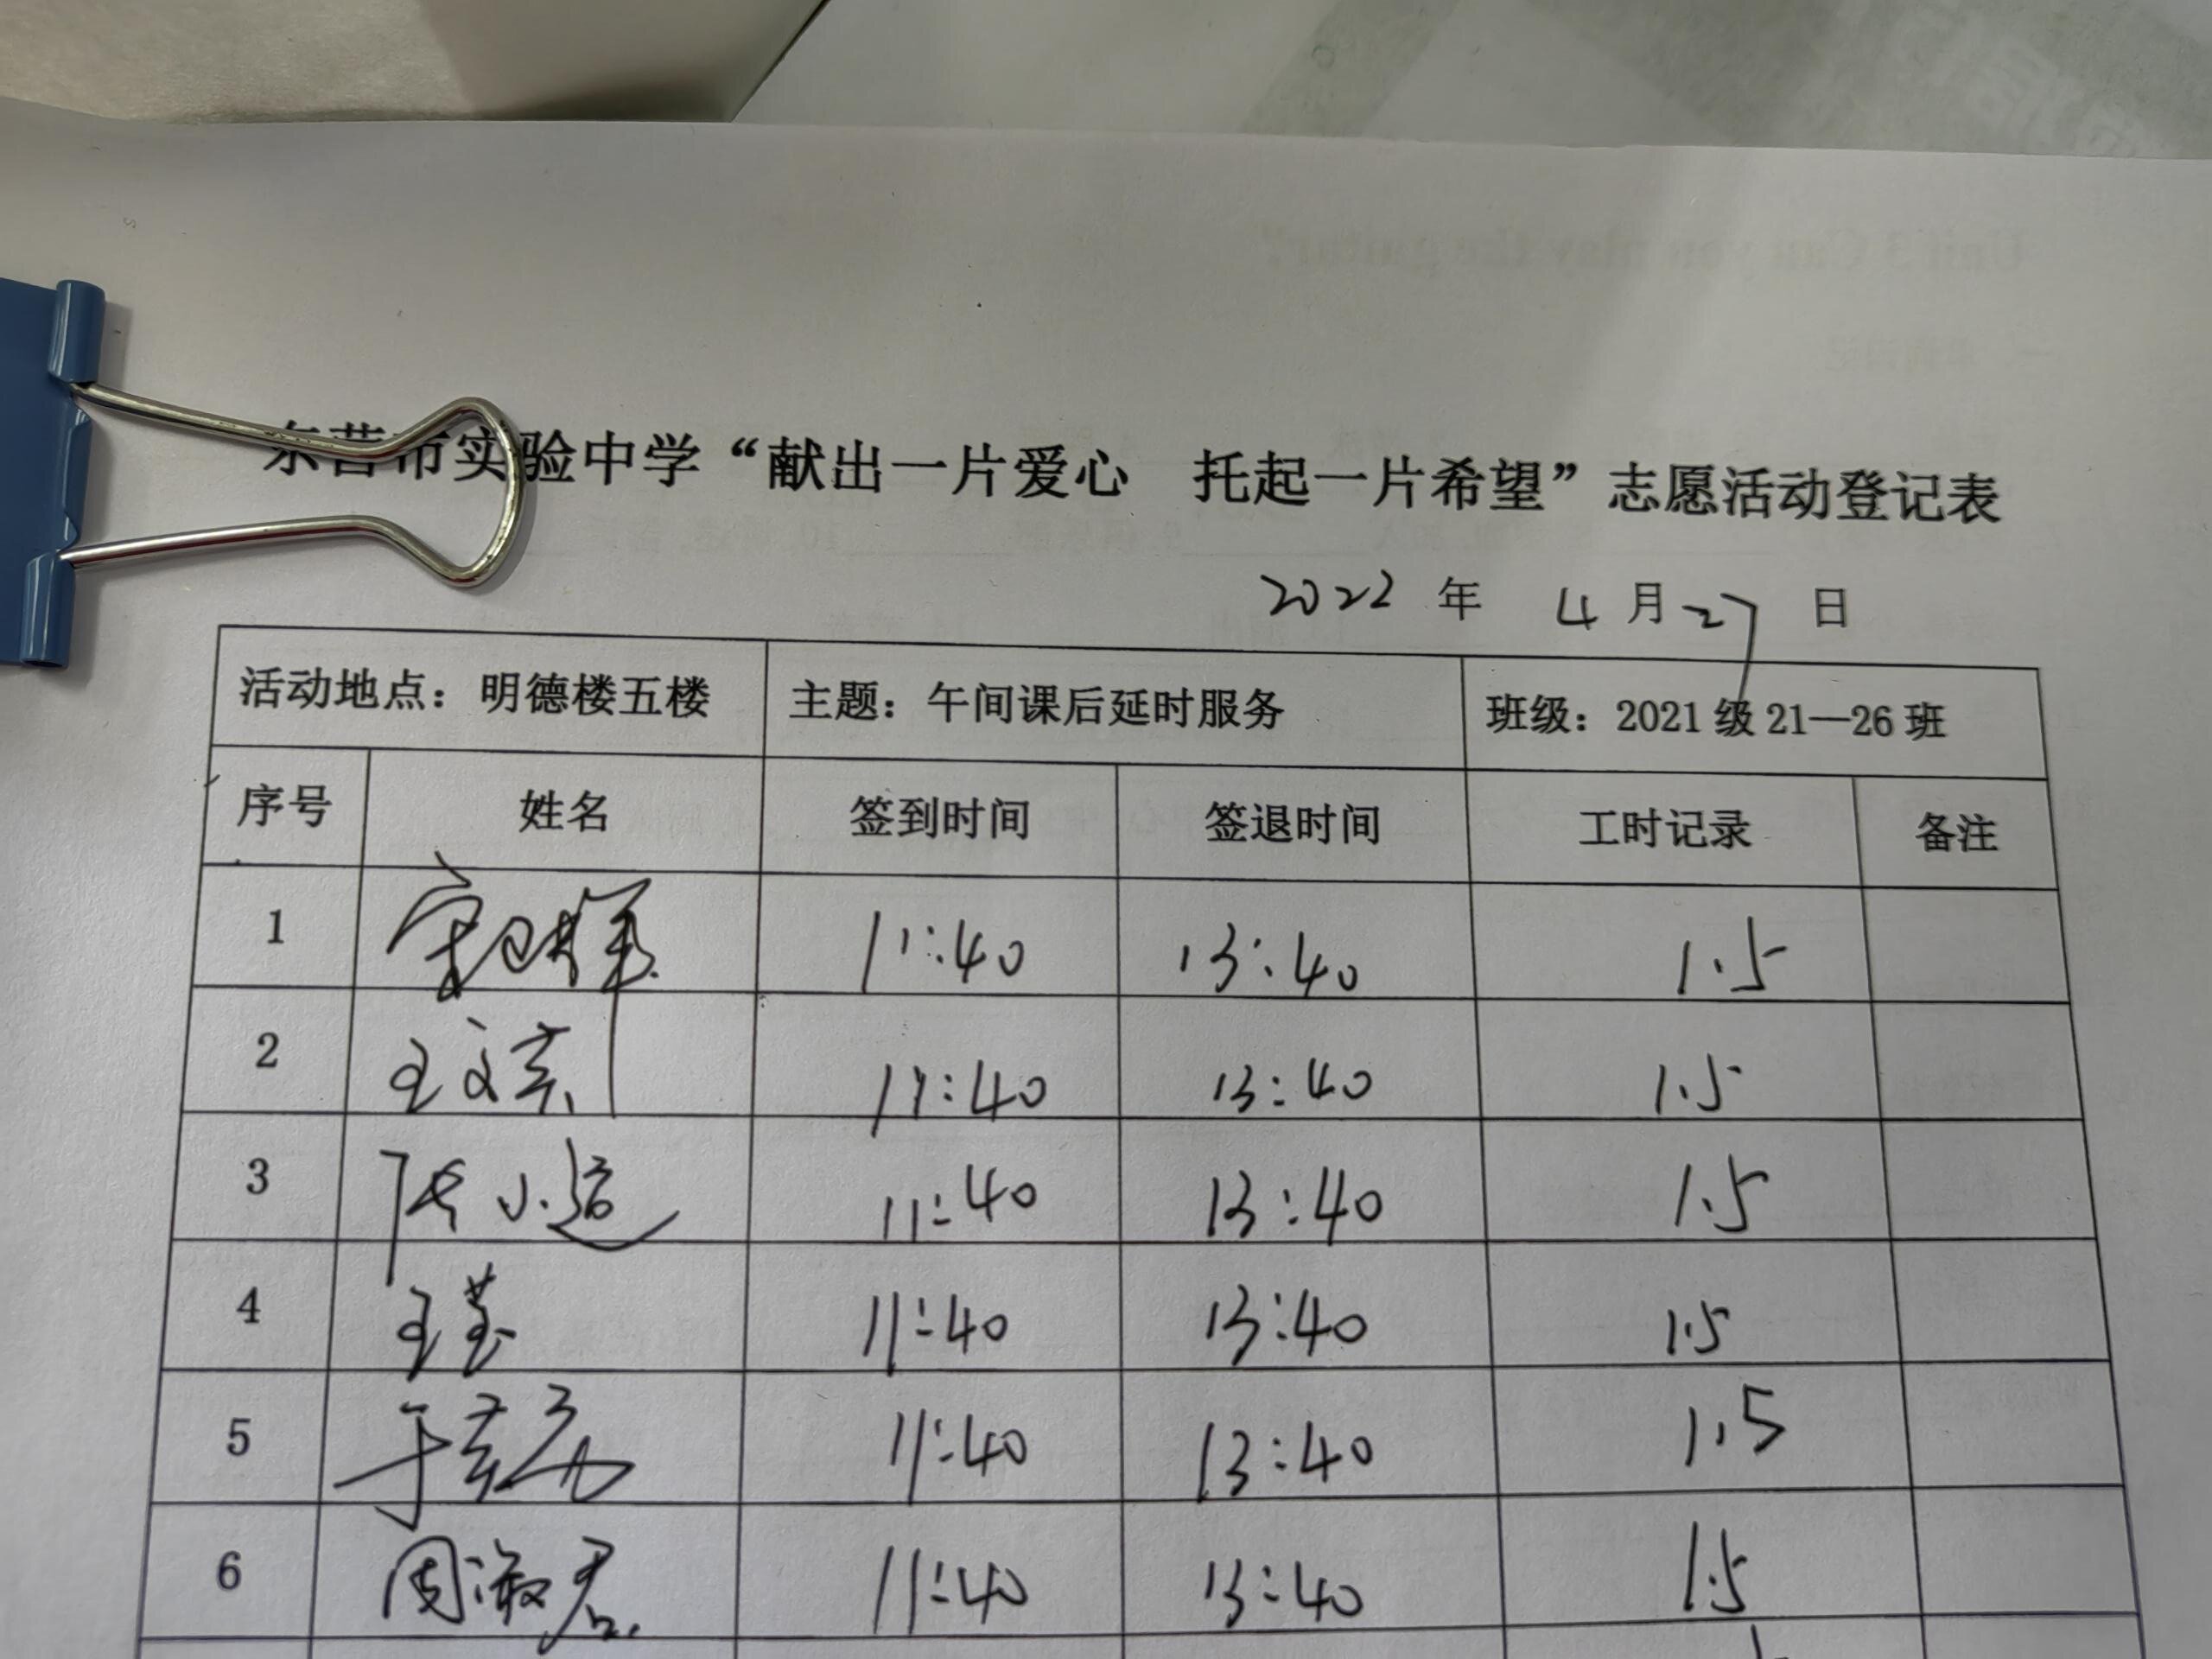 东营市实验中学“献出一片爱心 托起一片希望”志愿活动登记表
2022 年 4 月 27 日
活动地点：明德楼五楼 主题：午间课后延时服务 班级：2021级21—26班
序号 姓名 签到时间 签退时间 工时记录 备注
1 11:40 13:40 1.5
2 王文 11:40 13:40 1.5
3 张小 11:40 13:40 1.5
4 王 11:40 13:40 1.5
5 于 11:40 13:40 1.5
6 周淑君 11:40 13:40 1.5